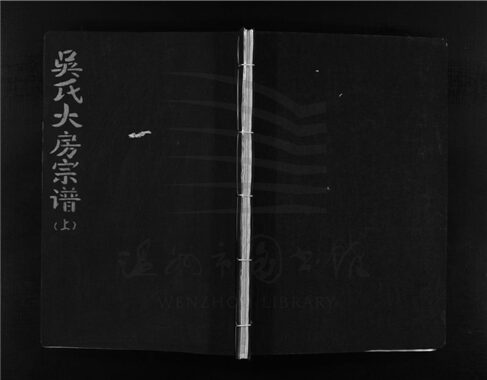 吳氏大房宗谱
（上）
温州市图书馆
WENZHOU LIBRARY